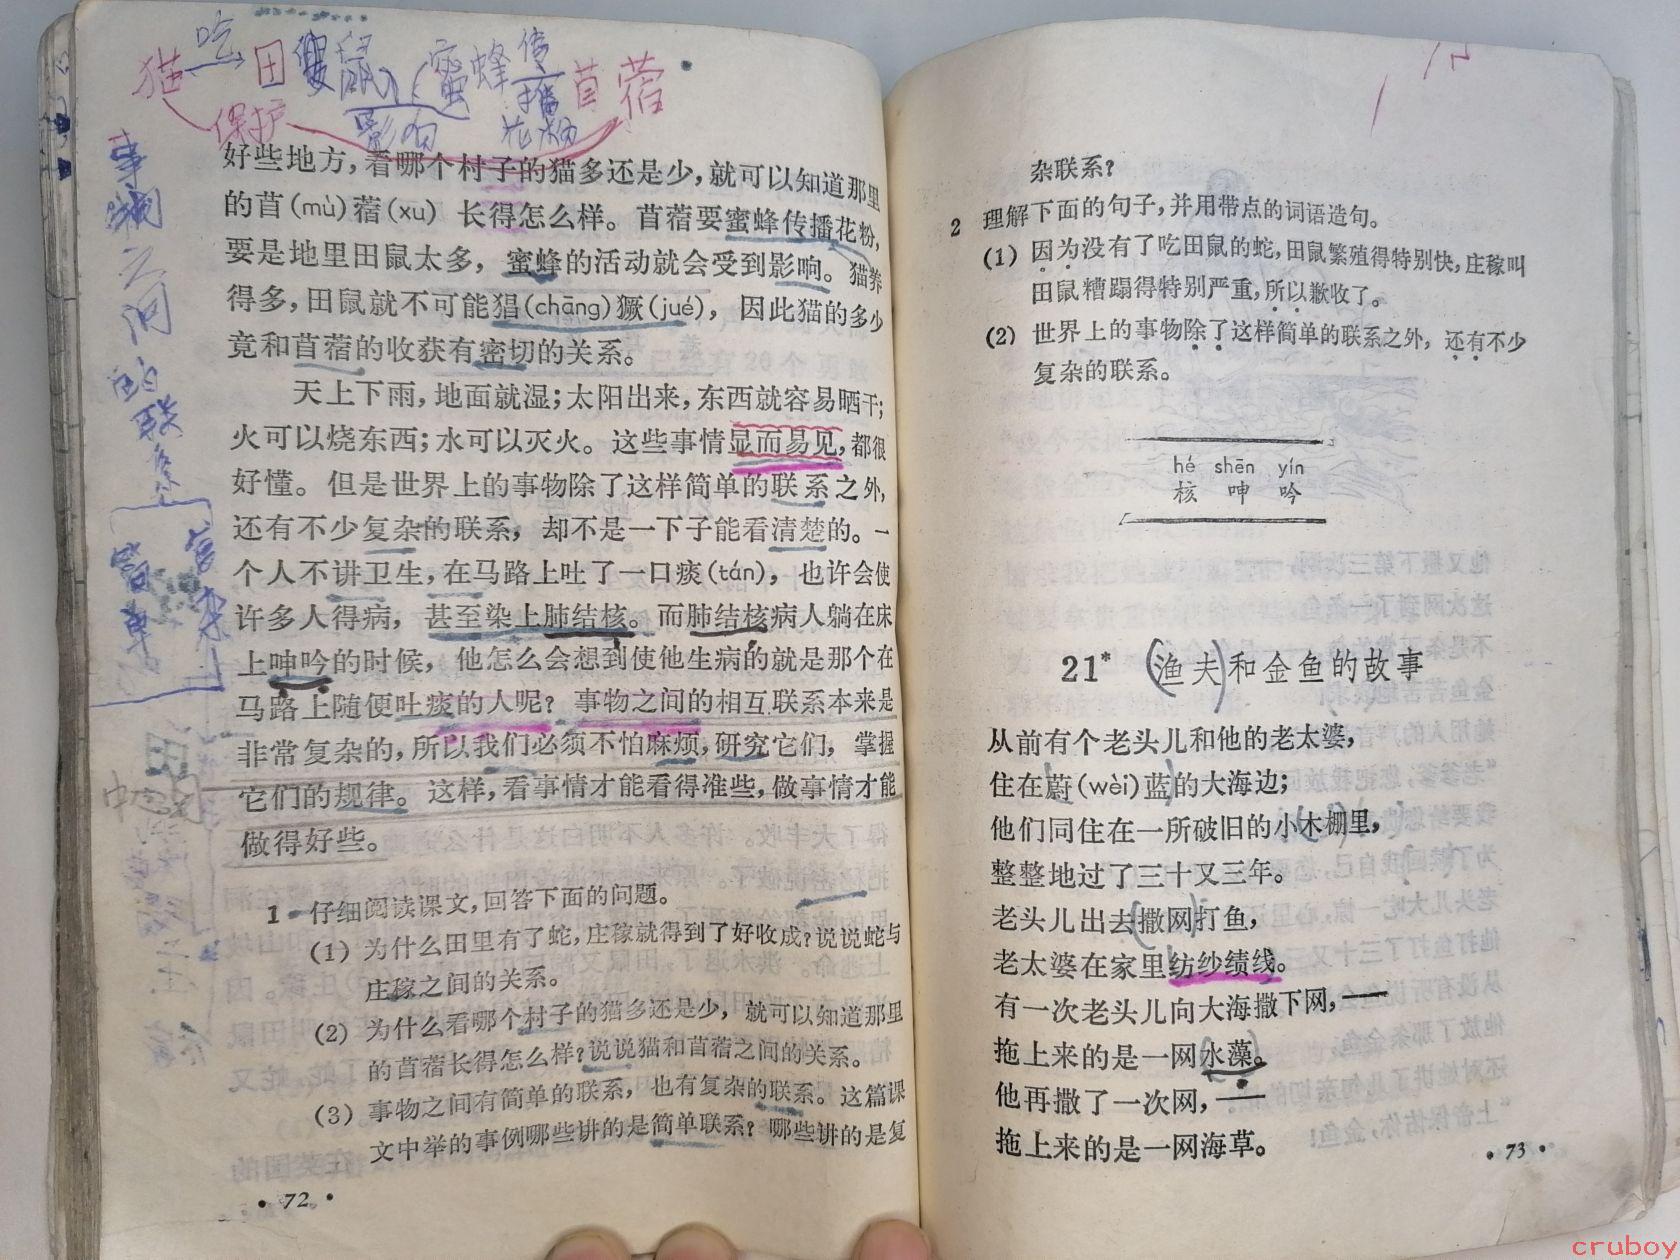 猫 吃 田鼠 蜜蜂 传播 苜蓿
保护 影响 花粉
事物之间的联系
简单
复杂
好些地方，看哪个村子的猫多还是少，就可以知道那里
的苜(mù)蓿(xu) 长得怎么样。苜蓿要蜜蜂传播花粉，
要是地里田鼠太多，蜜蜂的活动就会受到影响。猫养
得多，田鼠就不可能猖(chāng)獗(jué)，因此猫的多少
竟和苜蓿的收获有密切的关系。
天上下雨，地面就湿；太阳出来，东西就容易晒干；
火可以烧东西；水可以灭火。这些事情显而易见，都很
好懂。但是世界上的事物除了这样简单的联系之外，
还有不少复杂的联系，却不是一下子能看清楚的。一
个人不讲卫生，在马路上吐了一口痰(tán)，也许会使
许多人得病，甚至染上肺结核。而肺结核病人躺在床
上呻吟的时候，他怎么会想到使他生病的就是那个在
马路上随便吐痰的人呢？事物之间的相互联系本来是
非常复杂的，所以我们必须不怕麻烦，研究它们，掌握
它们的规律。这样，看事情才能看得准些，做事情才能
做得好些。
1 仔细阅读课文，回答下面的问题。
(1) 为什么田里有了蛇，庄稼就得到了好收成？说说蛇与
庄稼之间的关系。
(2) 为什么看哪个村子的猫多还是少，就可以知道那里
的苜蓿长得怎么样？说说猫和苜蓿之间的关系。
(3) 事物之间有简单的联系，也有复杂的联系。这篇课
文中举的事例哪些讲的是简单联系？哪些讲的是复
• 72 •
杂联系？
2 理解下面的句子，并用带点的词语造句。
(1) 因为没有了吃田鼠的蛇，田鼠繁殖得特别快，庄稼叫
田鼠糟蹋得特别严重，所以歉收了。
(2) 世界上的事物除了这样简单的联系之外，还有不少
复杂的联系。
hé shēn yín
核 呻 吟
21* 渔夫和金鱼的故事
从前有个老头儿和他的老太婆，
住在蔚(wèi)蓝的大海边；
他们同住在一所破旧的小木棚里，
整整地过了三十又三年。
老头儿出去撒网打鱼，
老太婆在家里纺纱绩线。
有一次老头儿向大海撒下网，——
拖上来的是一网水藻。
他再撒了一次网，——
拖上来的是一网海草。
• 73 •
cruboy